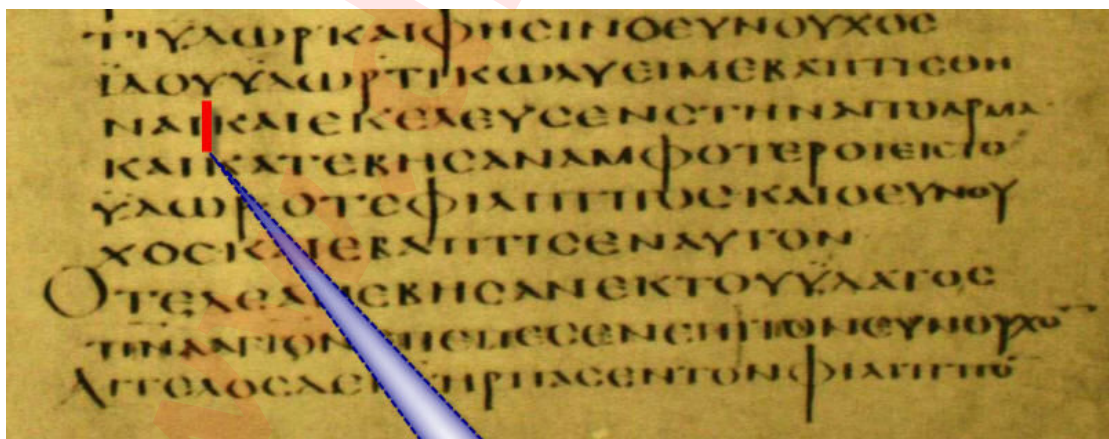 ΤΙΥΔΩΡΚΑΙΦΗCΙΝΟΕΥΝΟΥΧΟC
ΪΔΟΥΫΔΩΡΤΙΚΩΛΥΕΙΜΕΒΑΠΤΙCΘΗ
ΝΑΙΚΑΙΕΚΕΛΕΥCΕΝCΤΗΝΑΙΤΟΑΡΜΑ·
ΚΑΙΚΑΤΕΒΗCΑΝΑΜΦΟΤΕΡΟΙΕΙCΤΟ̅
ΫΔΩΡΟΤΕΦΙΛΙΠΠΟC·ΚΑΙΟΕΥΝΟΥ
ΧΟC·ΚΑΙΕΒΑΠΤΙCΕΝΑΥΤΟΝ
ΟΤΕΔΕΑΝΕΒΗCΑΝΕΚΤΟΥΫΔΑΤΟC
Π̅Ν̅Α̅ΑΓΙΟΝΕΠΕΠΕCΕΝΕΠΙΤΟΝΕΥΝΟΥΧΟ̅
ΑΓΓΕΛΟCΔΕΚ̅Υ̅ΗΡΠΑCΕΝΤΟΝΦΙΛΙΠΠΟ̅